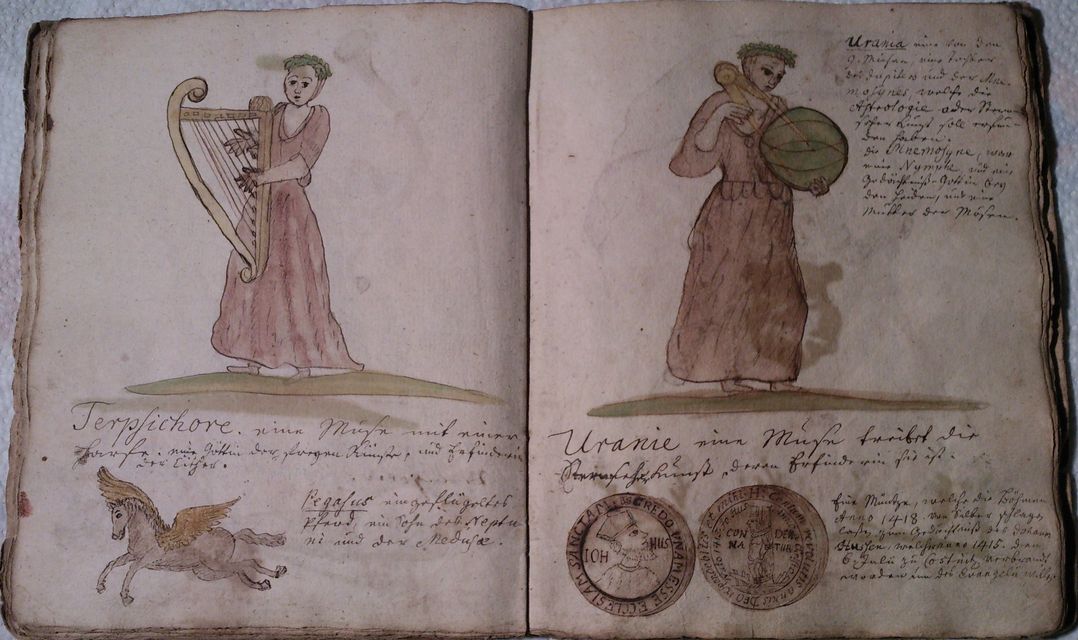 Terpsichore. eine Muse mit einer
Harfe. eine Göttin der freyen Künste, und Erfinderin
der Cither.
Pegasus ein geflügeltes
Pferd, ein Sohn des Neptu
ni und der Medusæ.
Urania eine von den
9. Musen, eine Tochter
des Jupiter und der Mne-
mosynes, welche die
Astrologie oder Stern
seher Kunst soll erfun-
den haben.
die Mnemosyne, war
eine Nymphe, und eine
Gedächtniß-Göttin bey
den Heiden, und eine
Mutter der Musen.
Uranie eine Muse treibet die
Sternseher Kunst, deren Erfinderin sie ist.
CREDO UNAM ESSE ECCLESIAM SANCTAM
IOH HUS
CON DEM
NA TUR
Eine Müntze, welche die Böhmen
Anno 1418. von Silber schlagen
lassen, zur Gedächtniß des Johann
Hussen, welcher anno 1415. den
6 Julii zu Costnitz verbrand
worden um des Evangelii will.